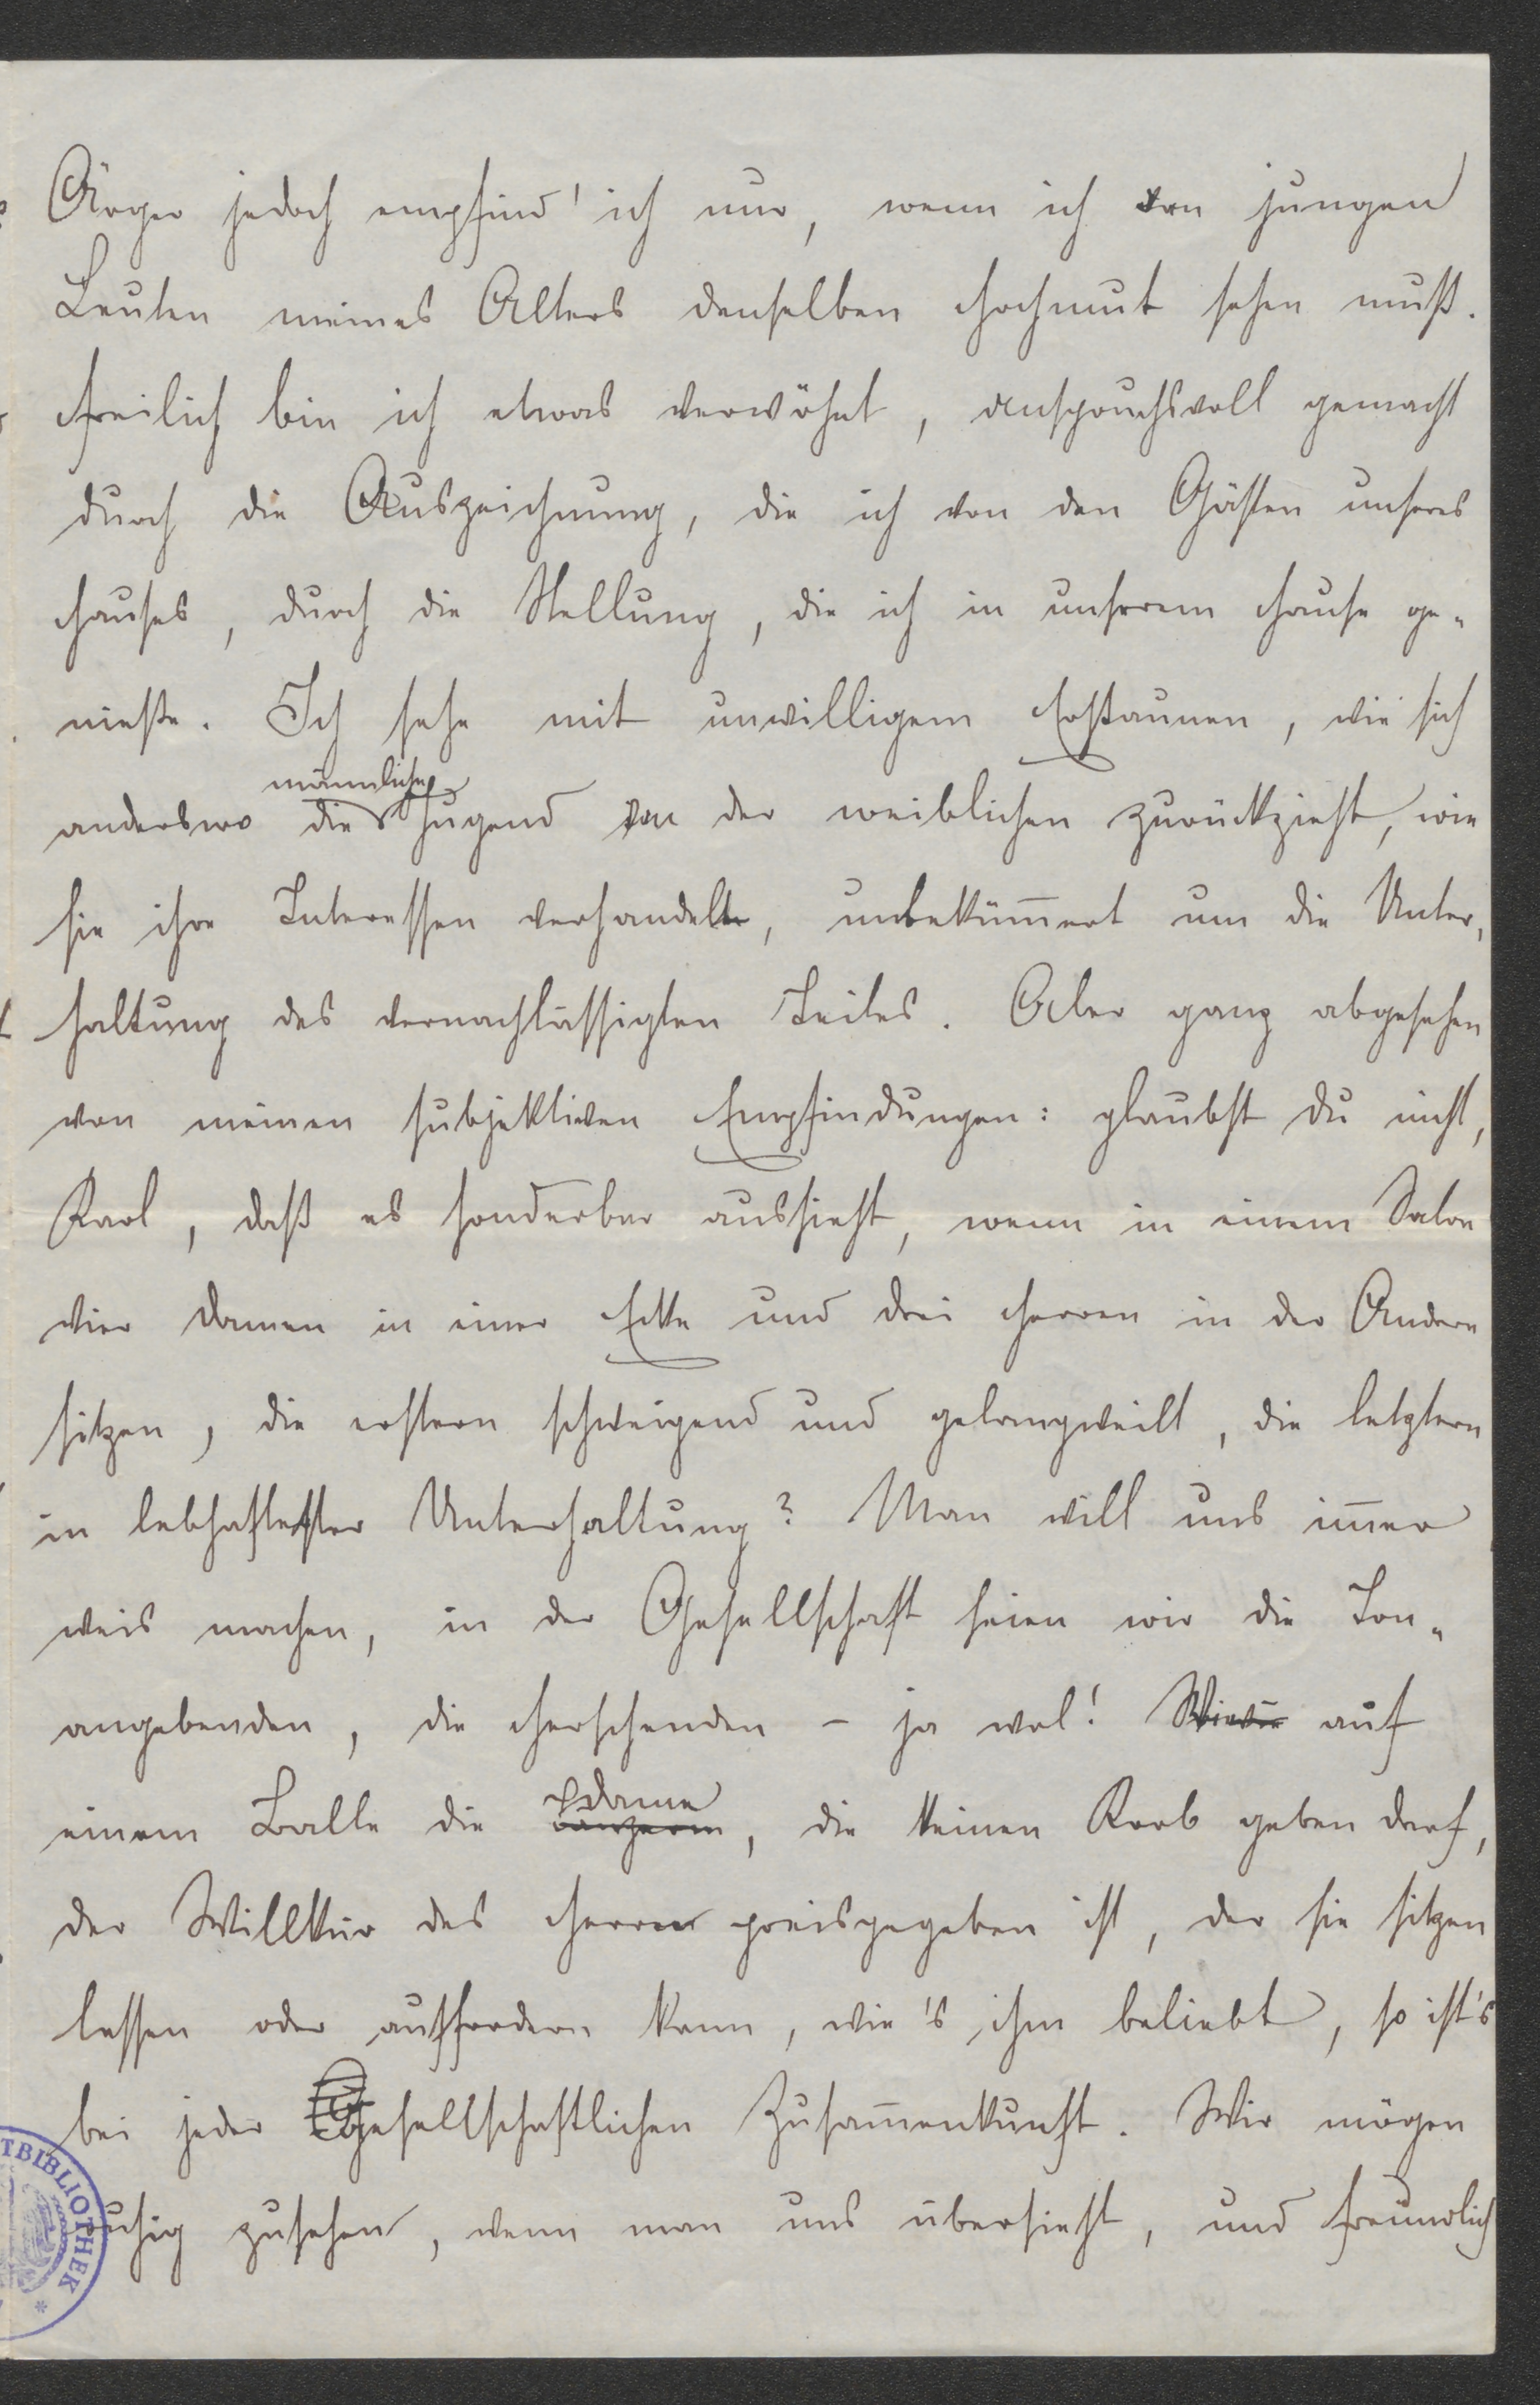 Ärger jedoch empfind' ich nur, wenn ich von jungen
Leuten meines Alters denselben Hochmut sehen muß.
Freilich bin ich etwas verwöhnt, anspruchsvoll gemacht
durch die Auszeichnung, die ich von den Gästen unseres
Hauses, durch die Stellung, die ich in unserem Hause ge-
nieße. Ich sehe mit unwilligem Erstaunen, wie sich
männliche
anderswo die Jugend von der weiblichen zurückzieht, wie
sie ihre Interessen verhandelt, unbekümmert um die Unter-
haltung des vernachlässigten Teiles. Aber ganz abgesehen
von meinen subjektiven Empfindungen: glaubst du nicht,
Karl, daß es sonderbar aussieht, wenn in einem Salon
vier Damen in einer Ecke und drei Herren in der Andern
sitzen, die erstern schweigend und gelangweilt, die letztern
in lebhaftester Unterhaltung? Man will uns immer
weis machen, in der Gesellschaft seien wir die Ton-
angebenden, die Herschenden - ja wol! Wie auf
Dame
einem Balle die , die keinen Korb geben darf,
der Willkür des Herren preisgegeben ist, der sie sitzen
lassen oder auffordern kann, wie's ihm beliebt, so ist's
bei jeder gesellschaftlichen Zusammenkunft. Wir mögen
ruhig zusehen, wenn man uns übersieht, und freundlich
TBIBLIOTHEK